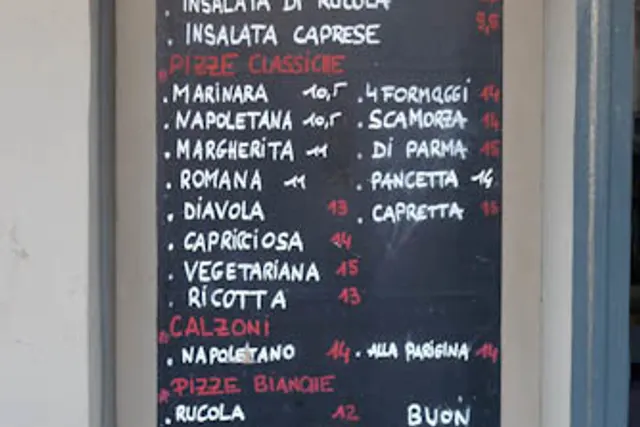 . INSALATA DI RUCOLA
. INSALATA CAPRESE 9,5
PIZZE CLASSICHE
. MARINARA 10,5 . 4 FORMAGGI 14
. NAPOLETANA 10,5 . SCAMORZA 14
. MARGHERITA 11 . DI PARMA 15
. ROMANA 11 . PANCETTA 14
. DIAVOLA 13 . CAPRETTA 15
. CAPRICCIOSA 14
. VEGETARIANA 15
. RICOTTA 13
CALZONI
. NAPOLETANO 14 . ALLA PARIGINA 14
PIZZE BIANCHE
. RUCOLA 12 BUON